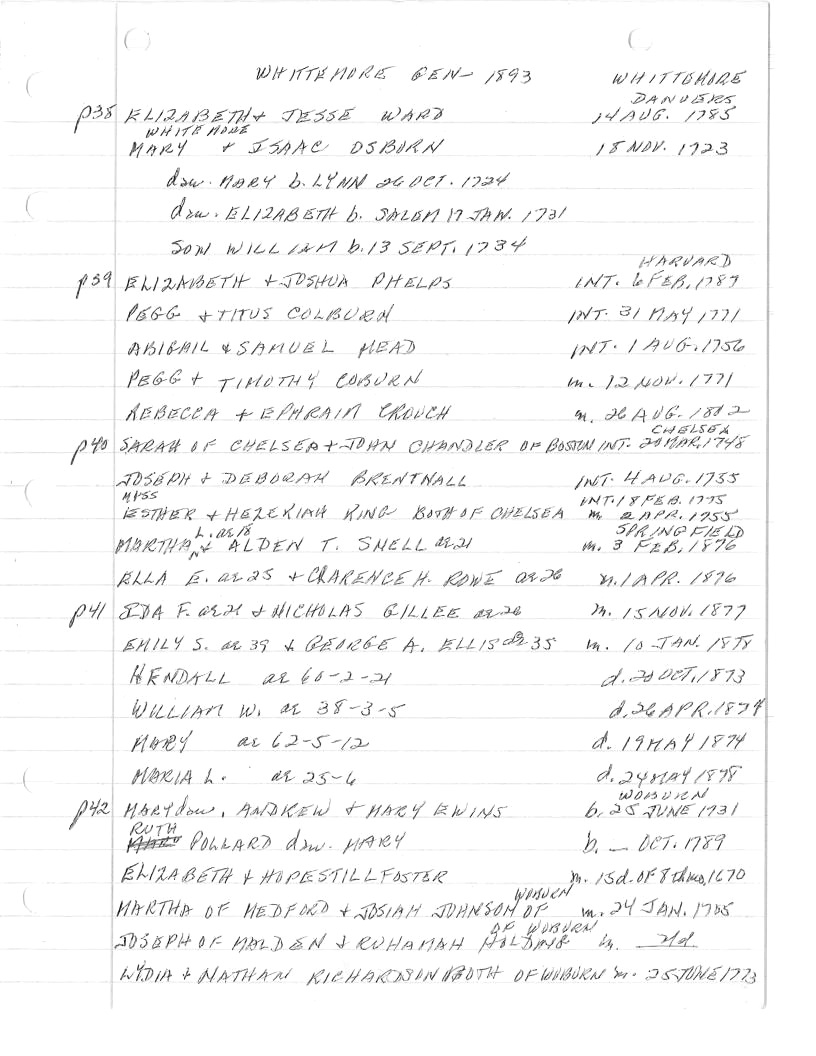 WHITTEMORE GEN- 1893 WHITTEMORE
DANVERS
p38 ELIZABETH & JESSE WARD 14 AUG. 1785
WHITEMORE
MARY & ISAAC OSBURN 18 NOV. 1723
daw. MARY b. LYNN 26 OCT. 1724
daw. ELIZABETH b. SALEM 17 JAN. 1731
SON WILLIAM b. 13 SEPT. 1734
HARVARD
p39 ELIZABETH & JOSHUA PHELPS INT. 6 FEB. 1787
PEGG & TITUS COLBURN INT. 31 MAY 1771
ABIGAIL & SAMUEL MEAD INT. 1 AUG. 1756
PEGG & TIMOTHY COBURN m. 12 NOV. 1771
REBECCA & EPHRAIM CROUCH m. 26 AUG. 1802
CHELSEA
p40 SARAH OF CHELSEA & JOHN CHANDLER OF BOSTON INT. 20 MAR. 1748
JOSEPH & DEBORAH BRENTNALL INT. 4 AUG. 1755
MISS INT. 18 FEB. 1775
ESTHER & HEZEKIAH RING BOTH OF CHELSEA m. 2 APR. 1755
L. ae 18 SPRINGFIELD
MARTHA & ALDEN T. SNELL ae 21 m. 3 FEB. 1876
ELLA E. ae 25 & CLARENCE H. ROWE ae 26 m. 1 APR. 1876
p41 IDA F. ae 21 & NICHOLAS GILLEE ae 26 m. 15 NOV. 1877
EMILY S. ae 39 & GEORGE A. ELLIS ae 35 m. 10 JAN. 1878
KENDALL ae 60-2-21 d. 20 OCT. 1873
WILLIAM W. ae 38-3-5 d. 26 APR. 1874
MARY ae 62-5-12 d. 19 MAY 1874
MARIA L. ae 25-6 d. 24 MAY 1878
WOBURN
p42 MARY daw. ANDREW & MARY EWINS b. 25 JUNE 1731
RUTH
POLLARD daw. MARY b. — OCT. 1789
ELIZABETH & HOPESTILL FOSTER m. 15d. OF 8th mo, 1670
WOBURN
MARTHA OF MEDFORD & JOSIAH JOHNSON OF m. 24 JAN. 1705
OF WOBURN
JOSEPH OF MALDEN & RUHAMAH HOLDING m.
LYDIA & NATHAN RICHARDSON BOTH OF WOBURN m. 25 JUNE 1773